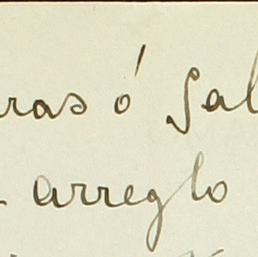 ras ó sal
arreglo